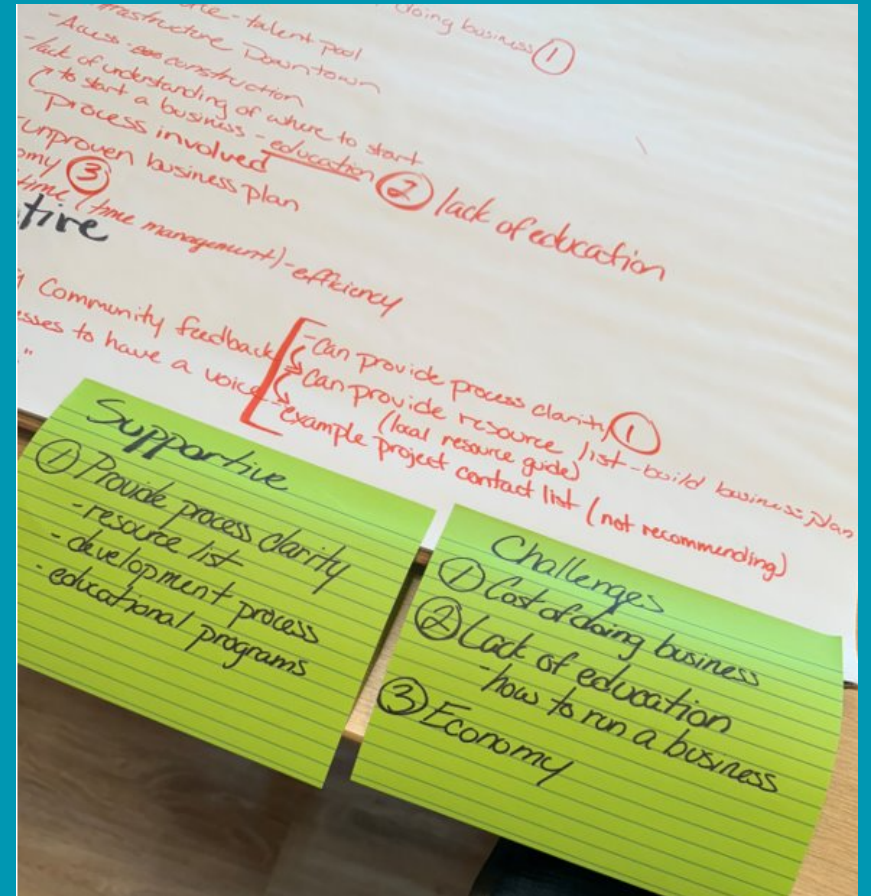 talent pool
doing business ①
Downtown
-Access construction
-lack of understanding of where to start
to start a business - education ② lack of education
Process involved
-unproven business plan
③
time (time management) - efficiency
Community feedback
to have a voice
- Can provide process clarity ①
Can provide resource list - build business plan
(local resource guide)
example project contact list (not recommending)
Supportive
① Provide process clarity
- resource list
- development process
- educational programs
Challenges
① Cost of doing business
② Lack of education
- how to run a business
③ Economy